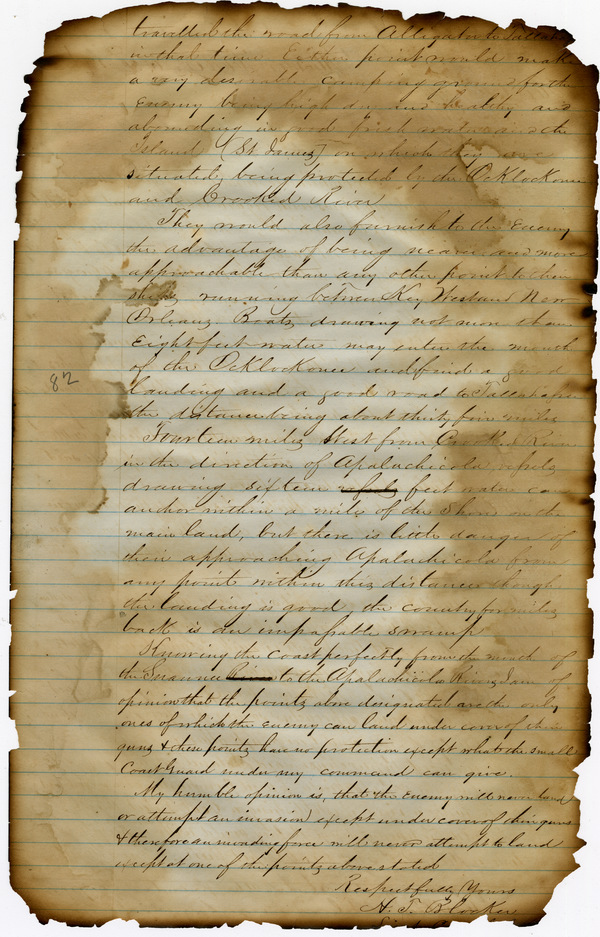 travelled the road from Alligator to Tallaha
in that time Either point would make
a very desirable camping ground for the
Enemy being high dry and healthy and
abounding in good fresh water and the
Island (St James) on which they are
situated, being protected by the Ocklockonee
and Crooked River
They would also furnish to the Enemy
the advantage of being nearer and more
approachable than any other point to their
ships running between Key West and New
Orleans Boats drawing not more than
Eight feet water may enter the mouth
of the Ocklockonee and find a good
landing and a good road to Tallahassee
the distance being about thirty five miles
82
Fourteen miles West from Crooked River
in the direction of Apalachicola vessels
drawing sixteen vessels feet water can
anchor within a mile of the Shore on the
main land, but there is little danger of
their approaching Apalachicola from
any point within this distance though
the landing is good, the country for miles
back is an impassable swamp
Knowing the coast perfectly from the mouth of
the Suannee River to the Apalachicola River I am of
opinion that the points above designated are the only
ones of which the Enemy can land under cover of their
guns & these points have no protection except what the small
Coast Guard under my command can give.
My humble opinion is, that the Enemy will never land
or attempt an invasion except under cover of their guns
& therefore an invading force will never attempt to land
except at one of the points above stated
Respectfully Yours
A. T. Blocker